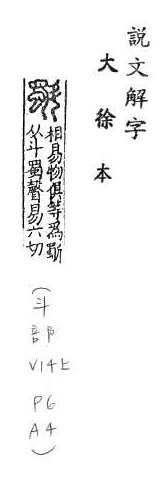 説文解字
大徐本
相易物俱等為斣
从斗蜀聲易六切
(斗
部
V14上
P6
A4)